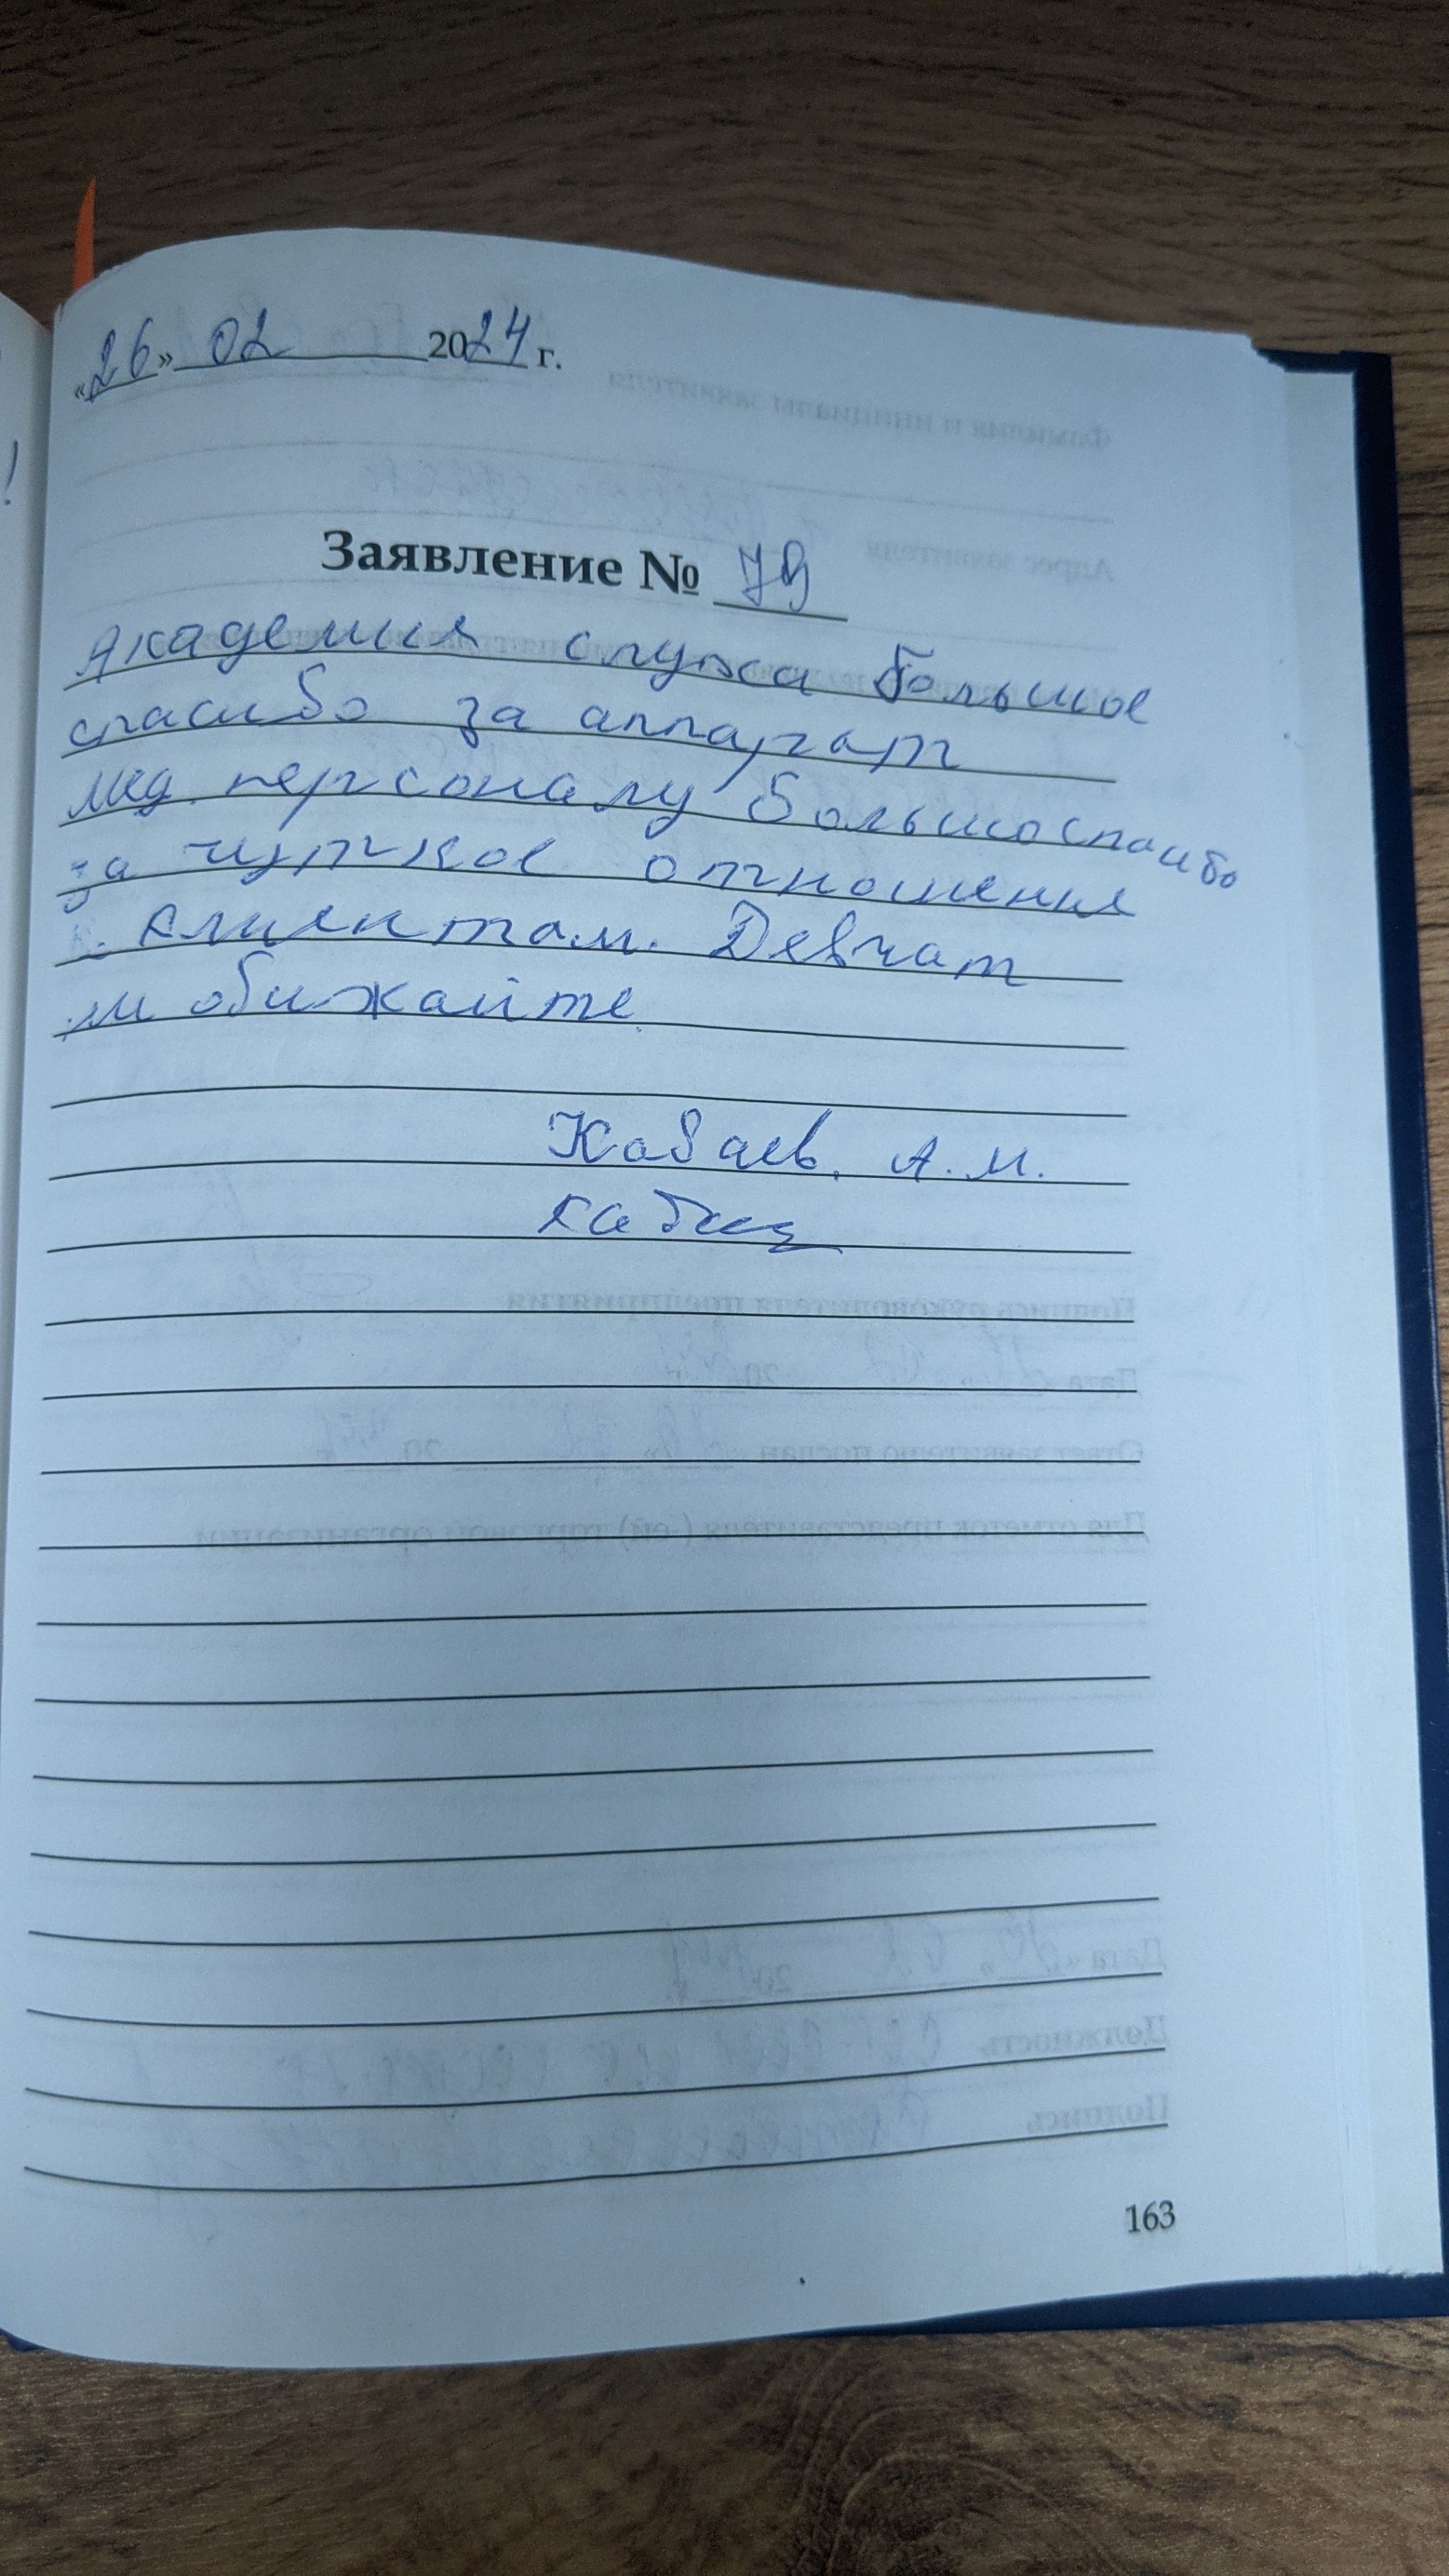 «26» 02 2024 г.
Заявление № 79
Академия слуха большое
спасибо за аппарат
мед. персоналу большоспасибо
за чуткое отношение
к клиентам. Девчат
не обижайте
Кабаев. А.М.
163